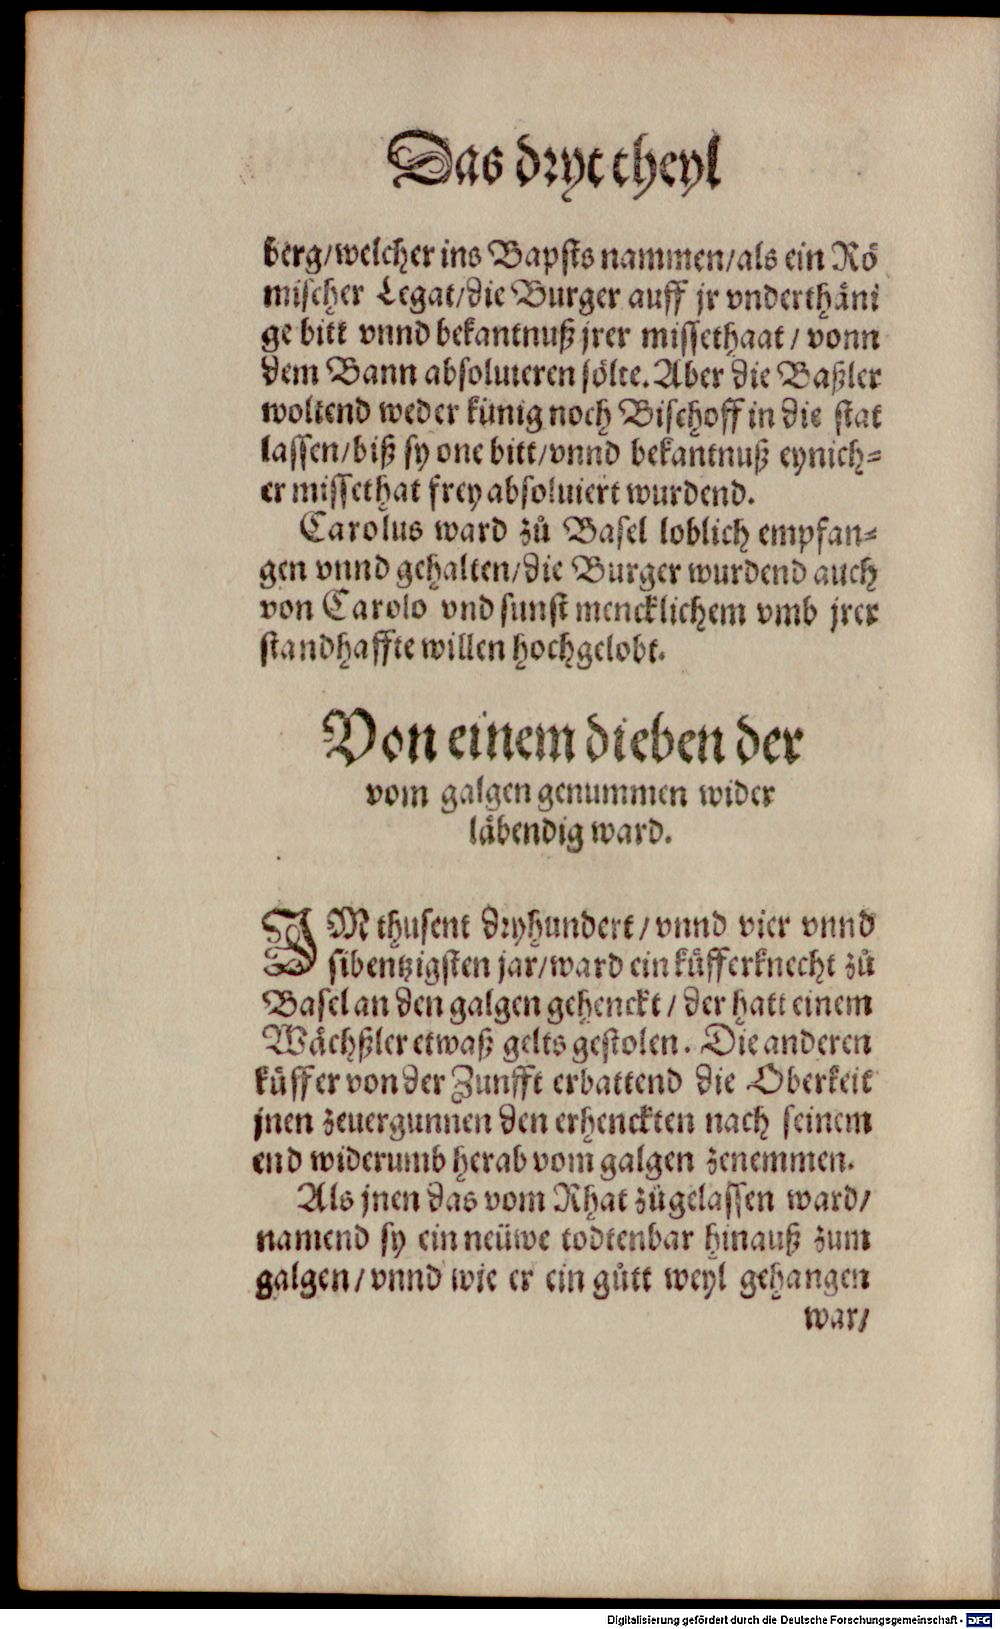 Das dryt theyl
berg/welcher ins Bapsts nammen/als ein Rö
mischer Legat/die Burger auff jr vnderthäni
ge bitt vnnd bekantnuß jrer missethaat / vonn
dem Bann absoluieren sölte. Aber die Baßler
woltend weder künig noch Bischoff in die stat
lassen/biß sy one bitt/vnnd bekantnuß eynich-
er missethat frey absoluiert wurdend.
Carolus ward zů Basel loblich empfan-
gen vnnd gehalten/die Burger wurdend auch
von Carolo vnd sunst mencklichem vmb jrer
standhaffte willen hochgelobt.
Von einem dieben der
vom galgen genummen wider
läbendig ward.
IM thusent dryhundert / vnnd vier vnnd
sibentzigsten jar/ward ein küfferknecht zů
Basel an den galgen gehenckt / der hatt einem
Wächßler etwaß gelts gestolen. Die anderen
küffer von der Zunfft erbattend die Oberkeit
jnen zeuergunnen den erhenckten nach seinem
end widerumb herab vom galgen zenemmen.
Als jnen das vom Rhat zůgelassen ward/
namend sy ein neüwe todtenbar hinauß zum
galgen / vnnd wie er ein gůtt weyl gehangen
war/
Digitalisierung gefördert durch die Deutsche Forschungsgemeinschaft - DFG